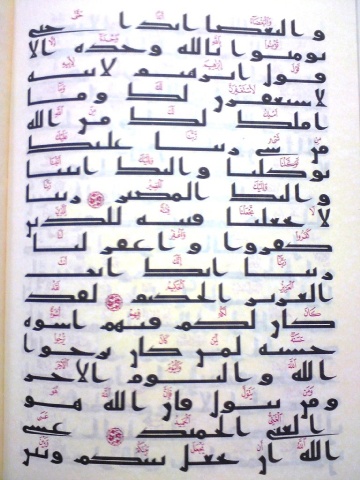 والبغضا ابدا حتى
تومنوا بالله وحده الا
قول ابرهيم لابيه
لاستغفرن لك وما
املك لك من الله
من شي ربنا عليك
توكلنا واليك انبنا
واليك المصير ربنا
لا تجعلنا فتنه للذين
كفروا واغفر لنا
ربنا انك انت
العزيز الحكيم لقد
كان لكم فيهم اسوه
حسنه لمن كان يرجوا
الله واليوم الاخر
ومن يتول فان الله هو
الغني الحميد عسى
الله ان يجعل بينكم وبين